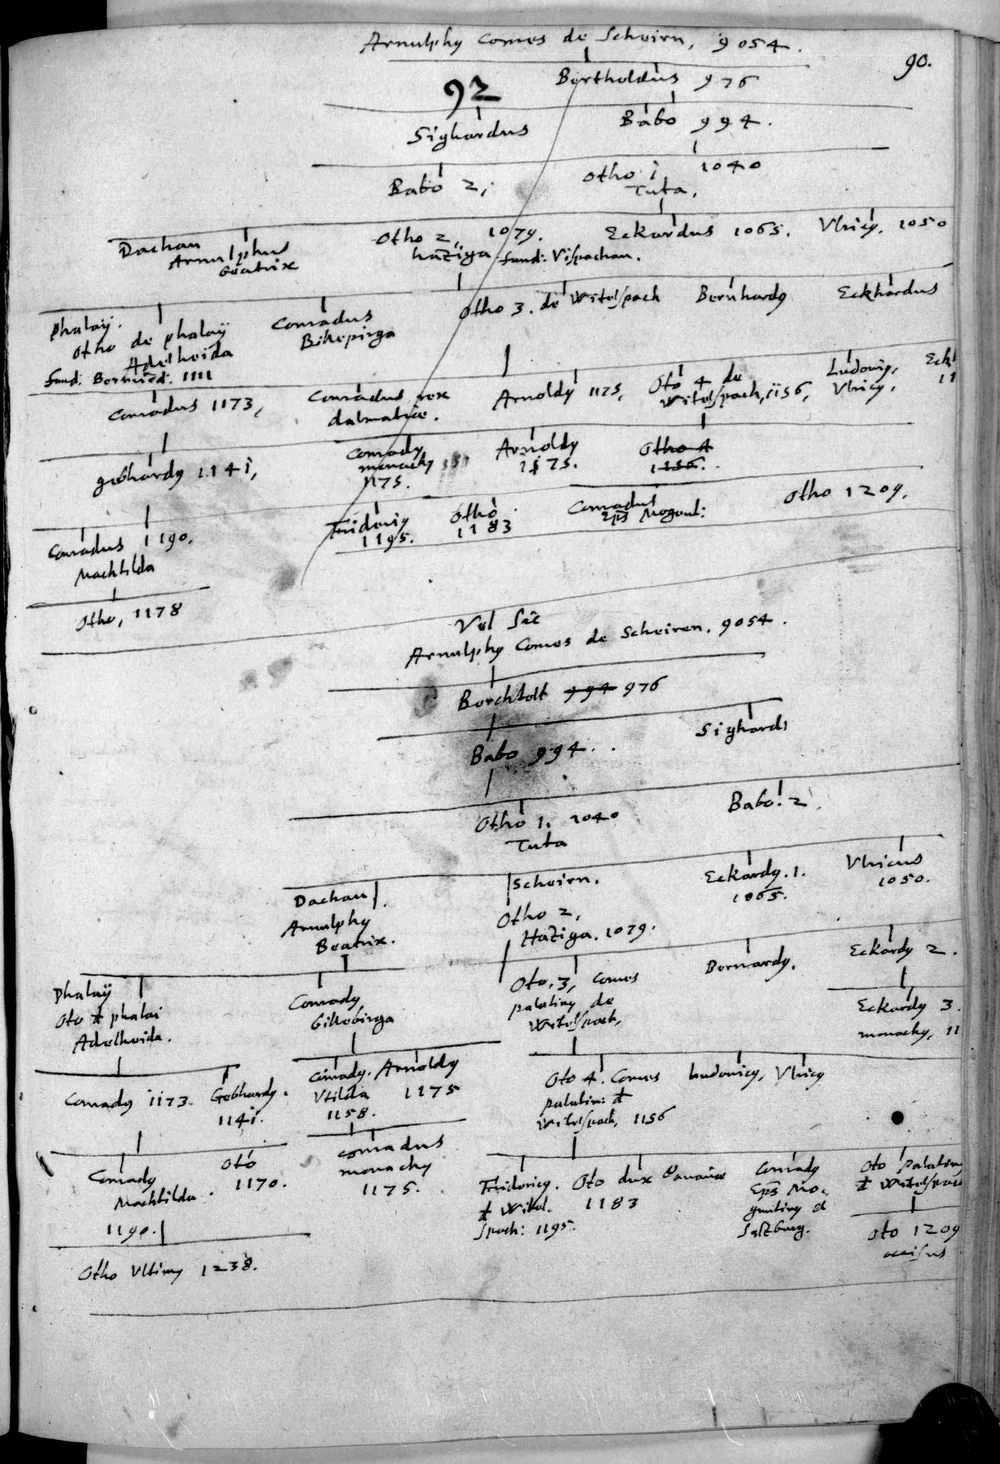 Arnulphy Comes de Scheirn, 9054.
90.
92
Bertholdus 976
Sighardus
Babo 994.
Babo 2,
Otho i 1040
Tuta,
Dachau
Arnulphus
Beatrix
Otho 2, 1079.
haziga fund: Vispachau.
Eckardus 1065.
Vlricy, 1050
Phalaÿ.
Otho de phalaÿ
Adelheida
fund: Bernried. 1111
Conradus
Bikepirga
Otho 3. de Witelspach
Bernhardy
Eckhardus
Conradus 1173,
Conradus rex
dalmatie.
Arnoldy 1175,
Oto 4 de
Witelspach, 1156,
Ludovig,
Vlricy,
Eck
11
gebhardy 1141,
Conrady
monachy
1175.
Arnoldy
1175.
Otho 4
1156.
Conradus 1190,
Machtilda
Fridericy
1195.
Otho
1183
Conradus
Eps Mogunt:
Otho 1209,
Otho, 1178
Vel Sic
Arnulphy Comes de Scheiren. 9054.
Berchtolt 994 976
Babo 994.
Sighardi
Otho 1. 1040
Tuta
Babo. 2
Dachau
Arnulphy
Beatrix.
Scheirn.
Otho 2,
Haziga. 1079.
Eckardy. 1.
1065.
Vlricus
1050.
Phalaÿ
Oto t phalai
Adelheida.
Conrady,
Gikebirga
Oto, 3, Comes
palatiny de
Witelspach,
Bernardy,
Eckardy 2.
Eckardy 3.
monachy, 11
Conrady 1173.
Gebhardy.
1141.
Conrady. Arnoldy
Vtilda 1175
1158.
Oto 4. Comes
palatin: t
Witelspach, 1156
Ludovicy, Vlricy
Conrady
Machtilda.
1190.
Oto
1170.
Conradus
monachy
1175.
Fridericy.
t Witel.
spach: 1195.
Oto dux Bavarie
1183
Conrady
Eps Mo:
guntiny et
Saltzburg.
Oto palatin
t Witelspac
Oto 1209
occisus
Otho Vltimy 1238.